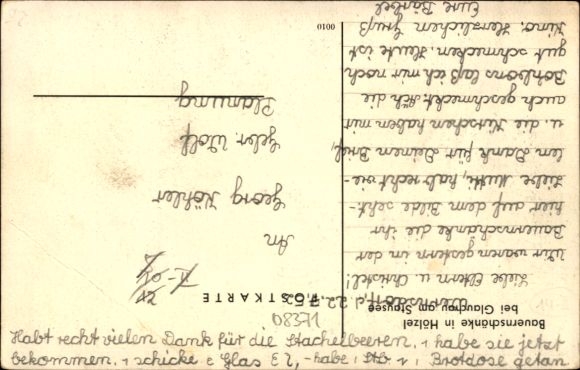 Bauernschänke in Hölzel
bei Glauchau am Stausee
Wernsdorf, d. 22.7.62
Liebe Eltern u. Christel!
Wir waren gestern in der
Bauernschänke die ihr
hier auf dem Bilde seht.
Liebe Mutti, hab recht vie-
len Dank für Deinen Brief,
u. die Kutschen haben mir
auch geschmeckt. Ach die
Bonbons laß ich mir noch
gut schmecken. Heute ist
Kino. Herzlichen Gruß
Eure Bärbel
0010
POSTKARTE
An
Georg Köhler
Wolf
Planung
08371
Habt recht vielen Dank für die Stachelbeeren, + habe sie jetzt
bekommen, + schicke e Glas
-habe
Brotdose getan